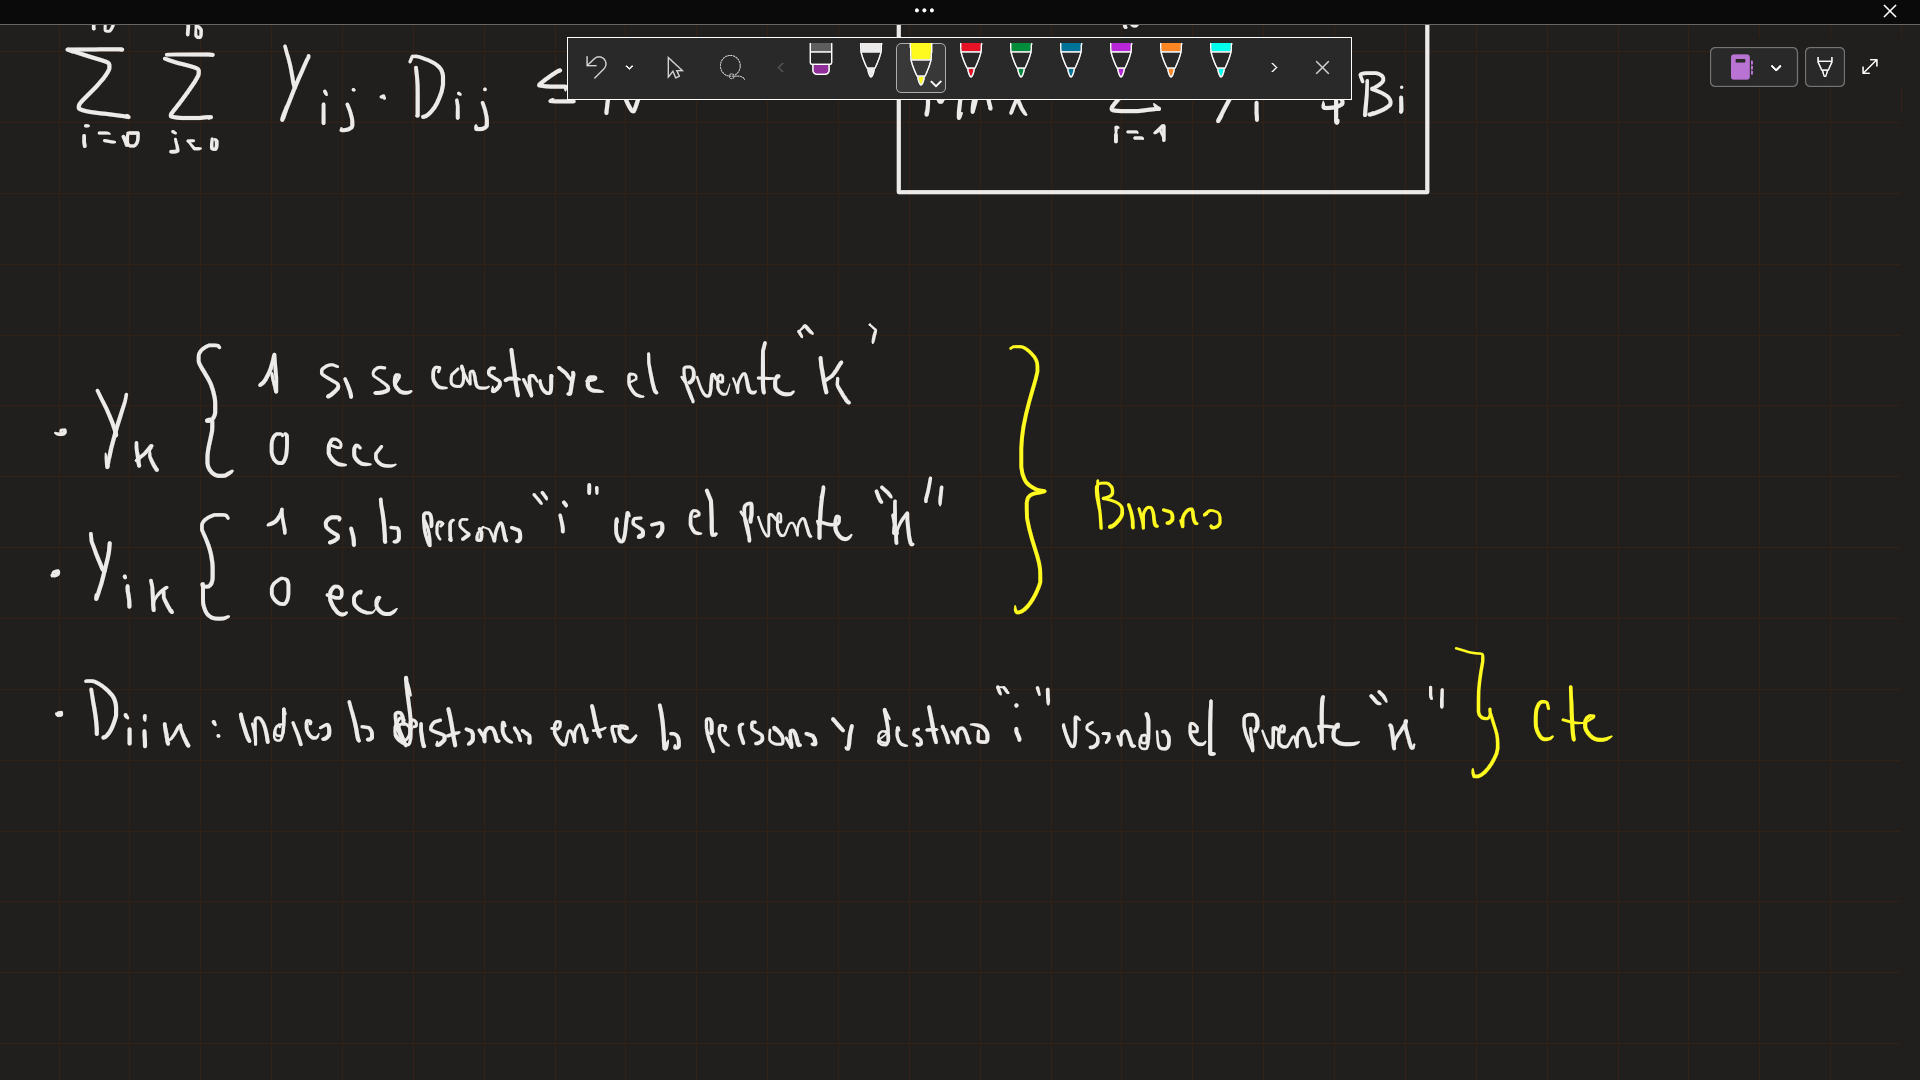 ∑ ∑ Yij · Dij ≤ N
i=0 j=0
Max ∑ Yi Bi
i=1
· Yk { 1 si se construye el puente "k"
0 ecc
· Yik { 1 si la persona "i" usa el puente "k"
0 ecc
} Binaria
· Diik : indica la distancia entre la persona y destino "i" usando el puente "k" } cte